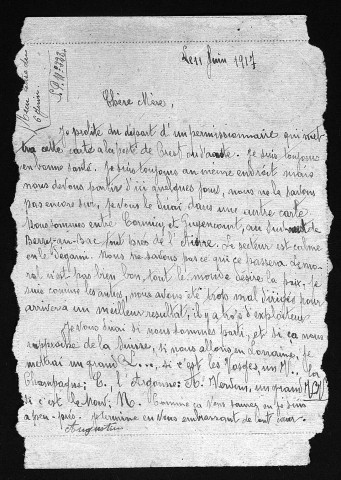 Le 11 Juin 1917
Chère Mère,
Je profite du départ d'un permissionnaire qui met
tra cette carte à la poste de Crest ou d'. Je suis toujours
en bonne santé. Je suis toujours au même endroit mais
nous devons partir d'ici quelques jours, nous ne le savons
pas encore sur, je vous le dirai dans une autre carte
Nous sommes entre Cormicy et Guyencourt, au sud de
Berry-au-Bac tout près de l'Aisne. Le secteur est calme
on le dégarni. Nous ne savons pas ce qui ce passera. Le mo
ral n'est pas bien bon, tout le monde désire la paix. Je
suis comme les autres, nous avons été trop mal dirigés pour
arriver a un meilleur resultat, il y a trop d'exploiteurs
Je vous dirai si nous sommes parti, et si ca nous
rapproche de la Suisse, si nous allons en Lorraine, je
mettrai un grand L..., si c'est les Vosges, un V.. la
Champagne: C. l'Argonne: A. Verdun, un grand V
si c'est le Nord: N. Comme ça vous saurez ou je suis
a peu-près. Je termine en vous embrassant de tout cœur.
Augustin